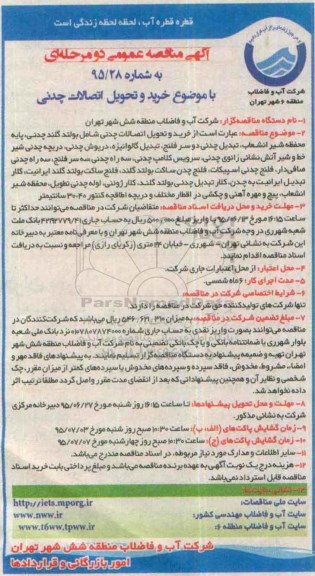 قطره قطره آب ، لحظه لحظه زندگی است
آگهی مناقصه عمومی دو مرحله‌ای
به شماره ۹۵/۲۸
با موضوع خرید و تحویل اتصالات چدنی
شرکت آب و فاضلاب
منطقه ۶ شهر تهران
۱- نام دستگاه مناقصه‌گزار: شرکت آب و فاضلاب منطقه شش شهر تهران
۲- موضوع مناقصه: عبارت است از خرید و تحویل اتصالات چدنی شامل بولند گلند چدنی، پایه
محفظه شیر انشعاب، تبدیل چدنی دو سر فلنج، تبدیل گالوانیزه، درپوش چدنی، دریچه چدنی شیر
خط و شیر آتش نشانی زانوی چدنی، سرویس کلامپ چدنی، سه راه چدنی سه سر فلنج، سه راه چدنی
صافی‌دار، فلنج چدنی اسپیکات، فلنج چدن ساکت بولند گلند، فلنج ساکت بولند گلند ایرانیت، کلار
تبدیل ایرانیت به چدن، کلار تبدیل چدنی بولند گلند، کلار ژونی، لوله چدنی نطویل، محفظه شیر
انشعاب، پیچ و مهره آهنی و چکشی در اقطار مختلف و دریچه اطاقچه کنتور ۴۰×۳۰ سانتیمتر
۳- مهلت خرید و محل دریافت اسناد مناقصه: متقاضیان شرکت در مناقصه می‌توانند حداکثر تا
ساعت ۱۶:۱۵ مورخ ۹۵/۰۶/۱۳ با واریز مبلغ ۵۰۰،۰۰۰ ریال به حساب جاری بانک ملت
شعبه شهرری در وجه شرکت آب و فاضلاب منطقه شش شهر تهران و با معرفی‌نامه معتبر به دبیرخانه
این شرکت به نشانی تهران – شهرری – خیابان ۲۴ متری (زکریای رازی) مراجعه و نسبت به دریافت
اسناد مناقصه اقدام نمایند.
۴- محل اعتبار: از محل اعتبارات جاری شرکت.
۵- مدت اجرای کار: ۶ ماه شمسی.
۶- شرایط اختصاصی شرکت در مناقصه:
تنها شرکت‌های تولیدکننده حق شرکت در مناقصه را دارند.
۷- مبلغ تضمین شرکت در مناقصه: به میزان ریال می‌باشد که شرکت‌کنندگان در
مناقصه می‌توانند بصورت واریز نقدی به حساب جاری شماره نزد بانک ملی شعبه
بلوار شهرری یا ضمانتنامه بانکی و یا چک بانکی تضمینی به نام شرکت آب و فاضلاب منطقه شش شهر
تهران تهیه و ضمیمه پیشنهاد به دستگاه مناقصه‌گزار تسلیم نمایند. به پیشنهادهای فاقد مهر و
امضاء، مشروط، مخدوش، فاقد سپرده و سپرده‌های مخدوش یا سپرده‌های کمتر از میزان مقرر، چک
شخصی و نظایر آن و همچنین پیشنهاداتی که بعد از انقضای مدت مقرر واصل گردد مطلقا ترتیب اثر
داده نخواهد شد.
۸- مهلت و محل تحویل پیشنهادها: تا ساعت ۱۶:۱۵ روز شنبه مورخ ۹۵/۰۶/۲۷ دبیرخانه مرکزی
شرکت به نشانی مذکور.
۹- زمان گشایش پاکت‌های (الف، ب): ساعت ۱۰:۳۰ صبح روز شنبه مورخ ۹۵/۰۷/۰۳
۱۰- زمان گشایش پاکت‌های (ج): ساعت ۱۰:۳۰ صبح روز چهارشنبه مورخ ۹۵/۰۷/۰۷
۱۱- سایر اطلاعات و مدارک مورد نیاز مربوطه، در اسناد مناقصه مندرج می‌باشد.
۱۲- هزینه درج یک نوبت آگهی به عهده برنده مناقصه می‌باشد و مبلغ پرداختی بابت خرید اسناد
مناقصه قابل استرداد نمی‌باشد.
سایت ملی مناقصات: http://iets.mporg.ir
سایت آب و فاضلاب مهندسی کشور: www.nww.ir
سایت آب و فاضلاب منطقه ۶: www.t6ww.tpww.ir
شرکت آب و فاضلاب منطقه شش شهر تهران
امور بازرگانی و قراردادها